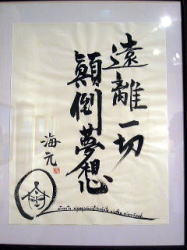 遠離一切
顛倒夢想
海元